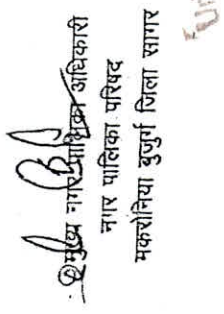 मुख्य नगरपालिका अधिकारी
नगर पालिका परिषद
मकरोनिया बुजुर्ग जिला सागर